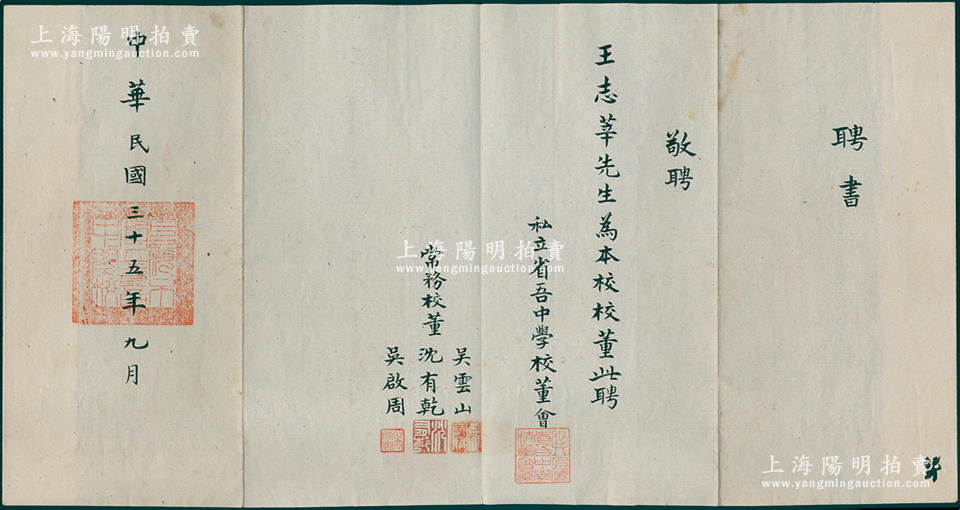 聘書
敬聘
王志莘先生為本校校董此聘
私立省吾中學校董會
常務校董
吴雲山
沈有乾
吳啟周
中華民國三十五年九月
上海陽明拍賣
www.yangmingauction.com
上海陽明拍賣
www.yangmingauction.com
上海陽明拍賣
www.yangmingauction.com